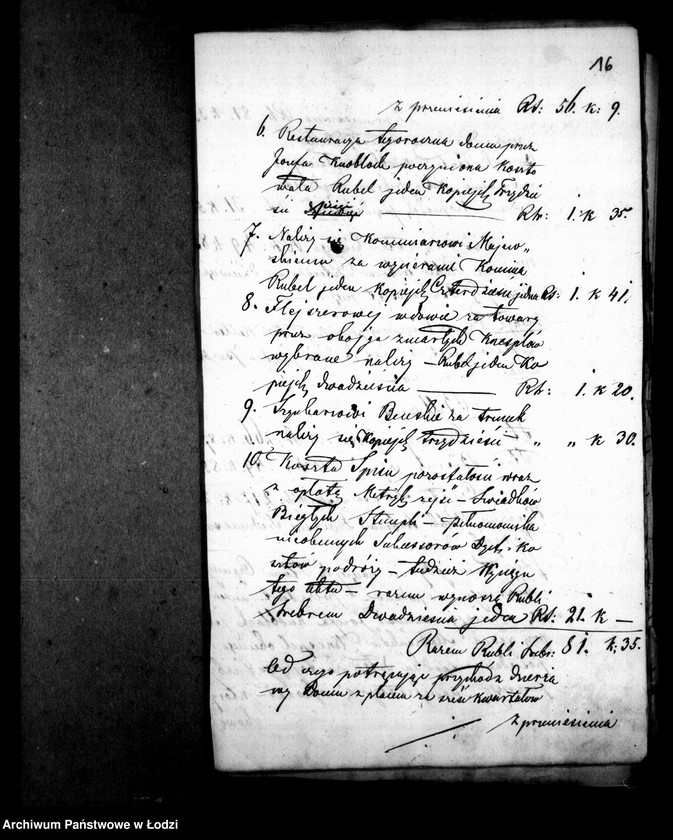 16
z przeniesienia Rs: 56. k: 9.
6. Restauracya tegoroczna domu przez
Józefa Knobloch poczyniona koszto
wała Rubel jeden Kopiejek Trzydzie
ści Rs: 1. k 35.
7. Należy się Kominiarzowi Majew„
skiemu za wycieranie Komina
Rubel jeden Kopiejek Czterdzieści jedna Rs: 1. k 41.
8. Flejszerowej wdowie za towary
przez obojga zmarłych Knesplów
wybrane należy – Rubel jeden Ko
piejek dwadzieścia Rs: 1. k 20.
9. Szynkarzowi Benske za trunek
należy się Kopiejek trzydzieści „ „ k 30.
10. Koszta Spisu pozostałości wraz
z opłatą Metryk zejść – Świadków
Biegłych Stempli – pełnomocnika
nieobecnych Sukcessorów i ko
sztów podróży – tudzież Wypisu
tego aktu – razem wynoszą Rubli
srebrem Dwadzieścia jeden Rs: 21. k —
Razem Rubli srebr: 81. k: 35.
Od czego potrącając przychód dzierża
wy Domu z placem za sześć kwartałów
z przeniesienia
Archiwum Państwowe w Łodzi